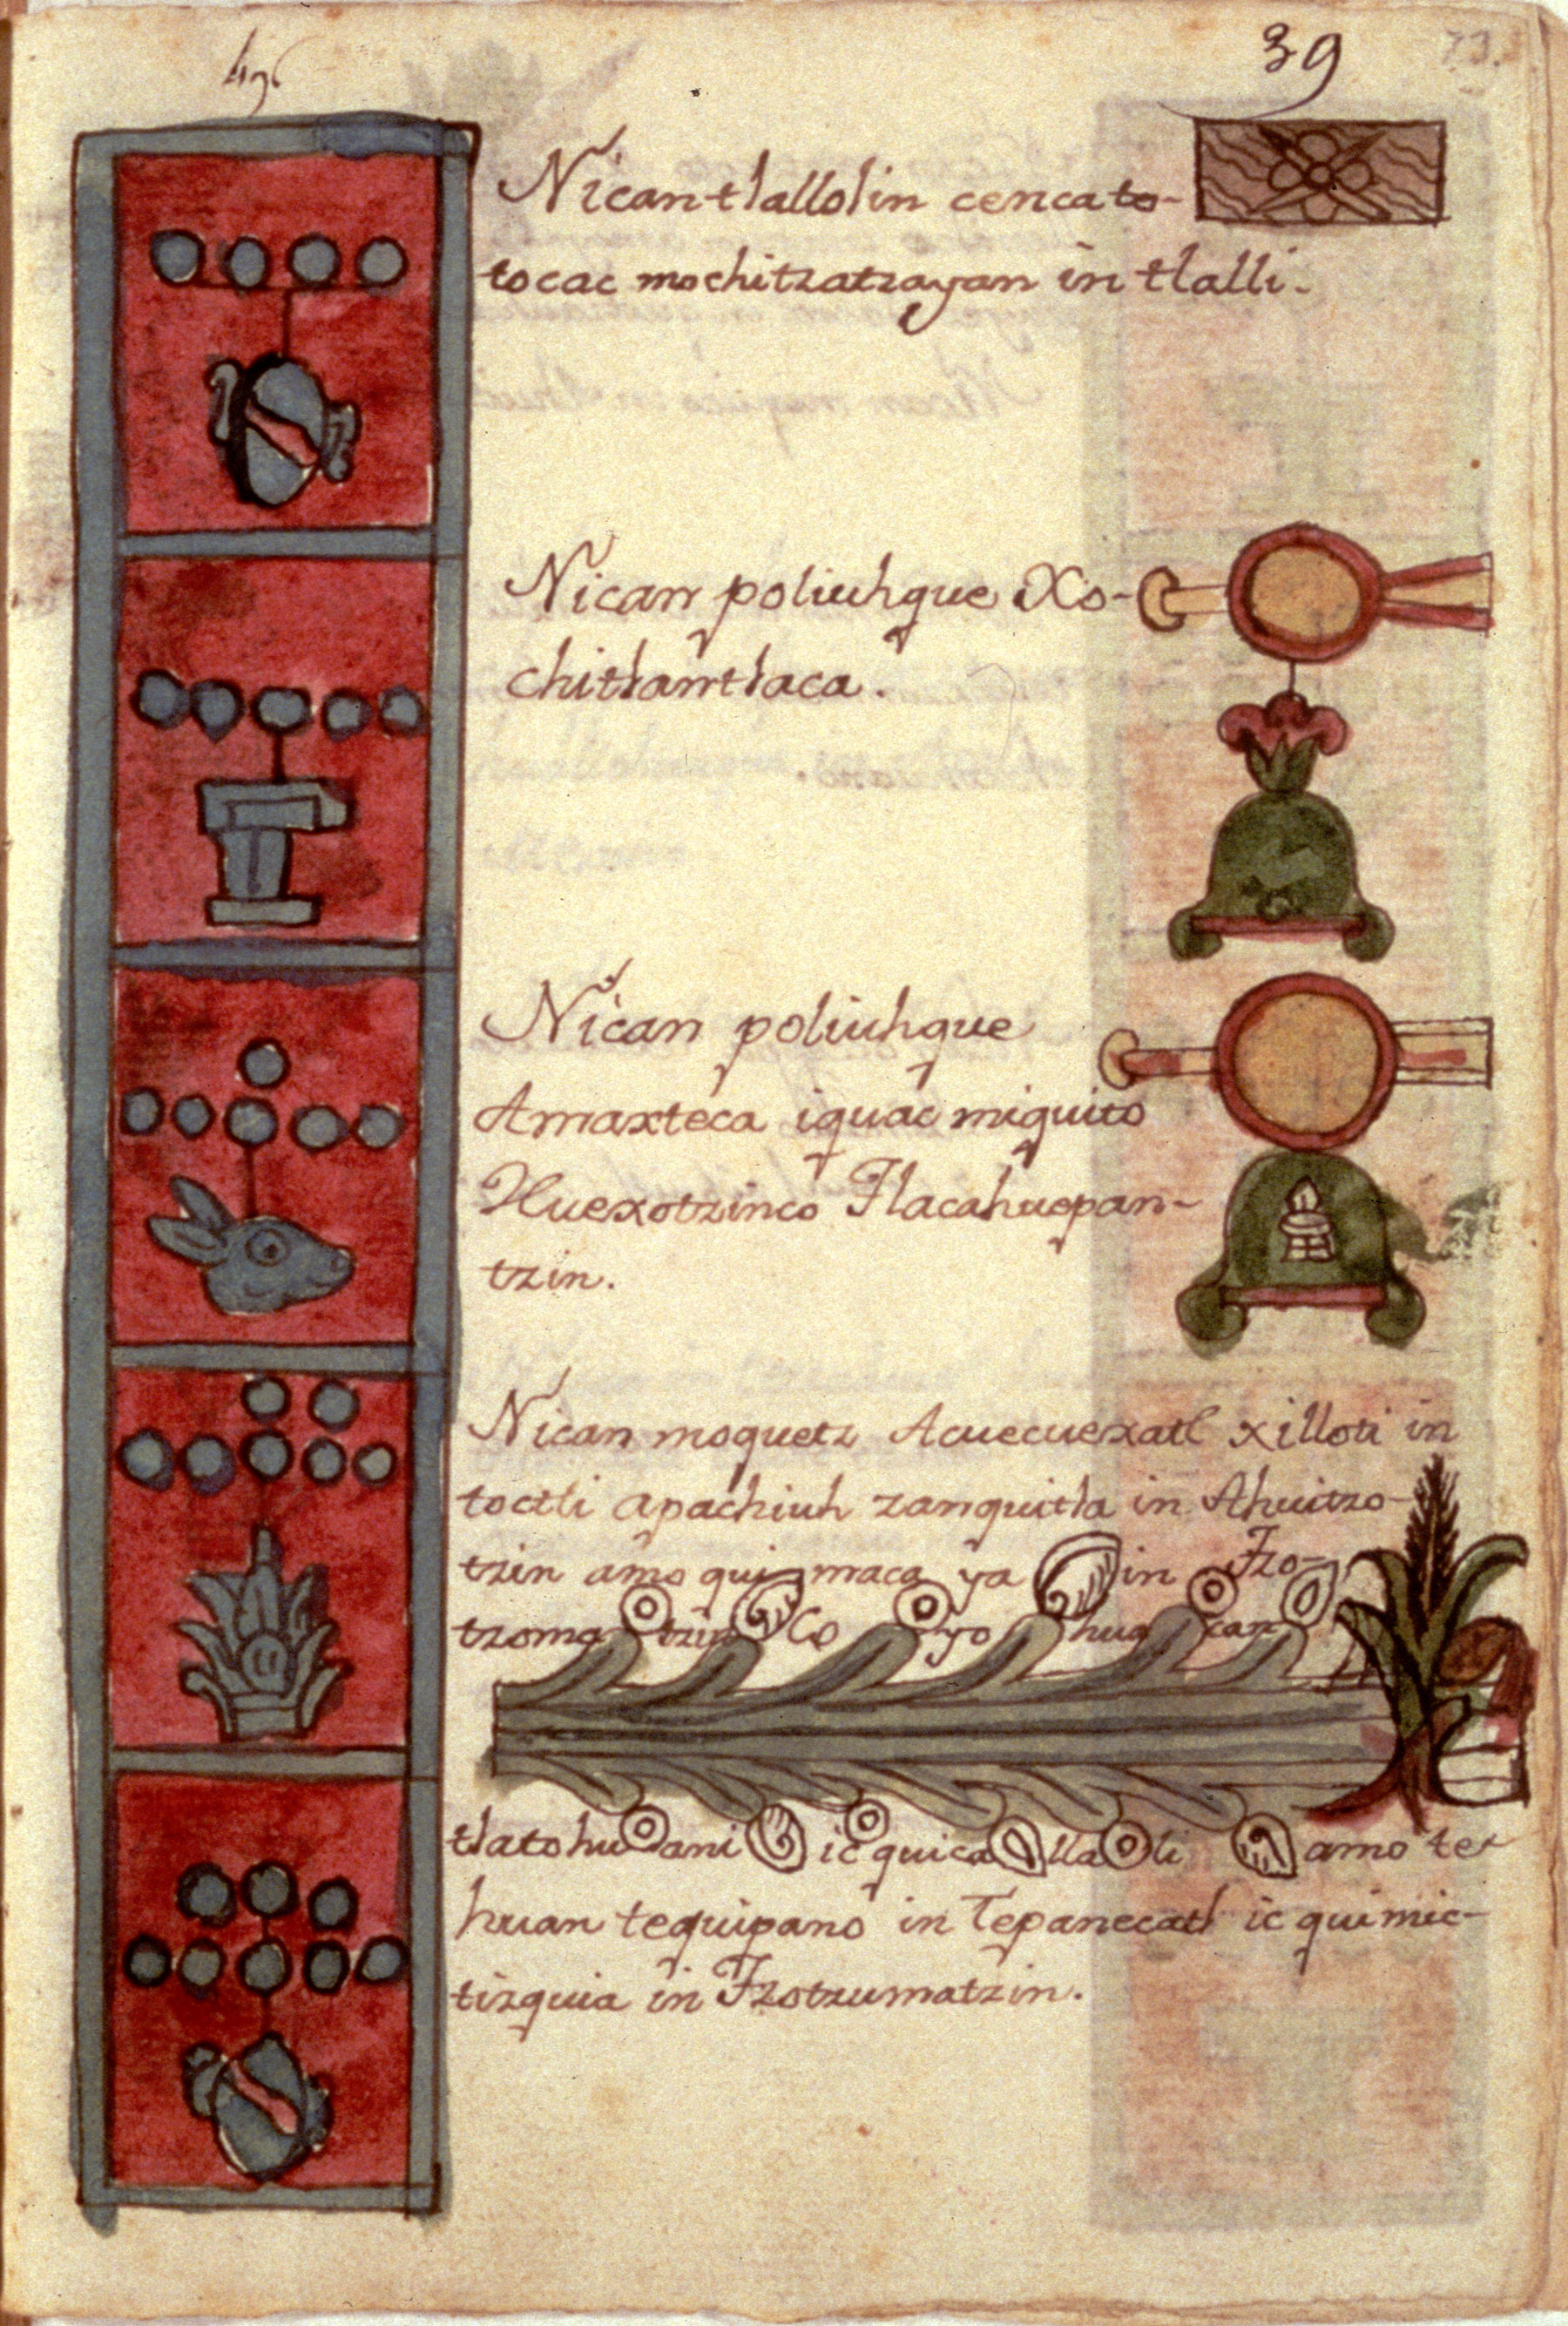 39
Nican tlallolin cencato-
tocac mochitzatzayan in tlalli.
Nican poliuhque Xo-
chitlantlaca.
Nican poliuhque
Amaxteca iquac miquito
Huexotzinco Tlacahuepan-
tzin.
Nican moquetz Acuecuexatl xilloti in
toctli apachiuh zanquitla in Ahuitzo-
tzin amo qui maca ya in Tzo-
tzoma tzin Co yo hua can
tlatohuani ic quica lla li amo te
huan tequipano in Tepanecatl ic quimic-
tizquia in Tzotzumatzin.